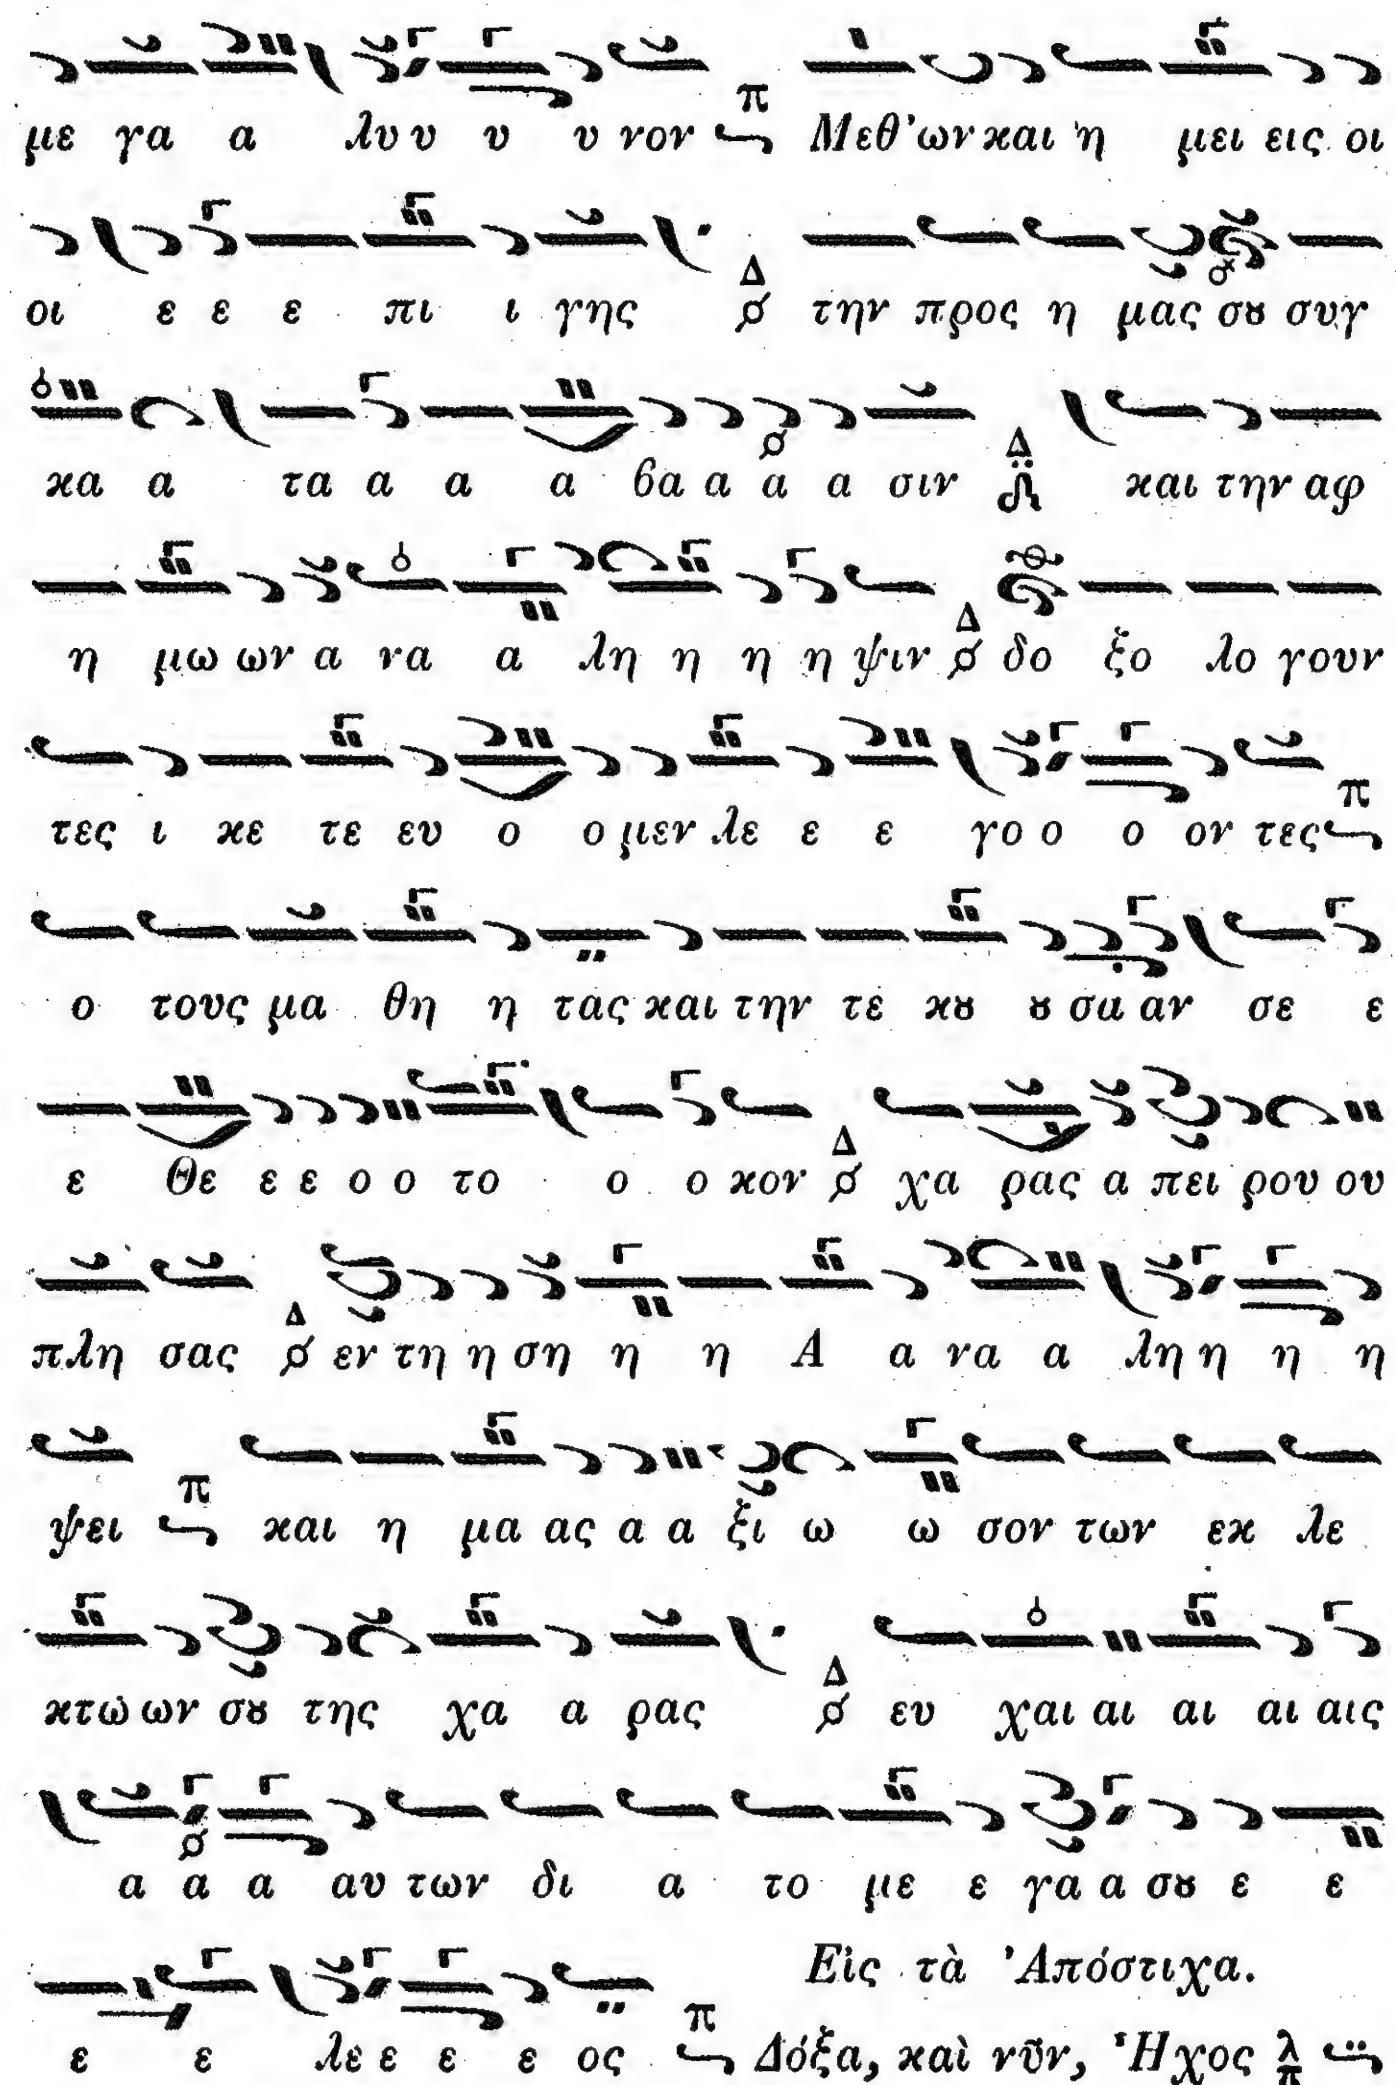 με γα α λυ υ υ υ νον π Μεθ' ων και 'η μει εις οι
οι ε ε ε πι ι γης Δ την προς η μας σȣ συγ
κα α τα α α α βα α α α σιν Δ και την αφ
η μω ων α να α λη η η η ψιν Δ δο ξο λο γουν
τες ι κε τε ευ ο ο μεν λε ε ε γο ο ο ον τες π
ο τους μα θη η τας και την τε κȣ ȣ σα αν σε ε
ε Θε ε ε ο ο το ο ο κον Δ χα ρας α πει ρου ου
πλη σας Δ εν τη η ση η η Α α να α λη η η η
ψει π και η μα ας α α ξι ω ω σον των εκ λε
κτω ων σȣ της χα α ρας Δ ευ χαι αι αι αι αις
α α α αυ των δι α το με ε γα α σȣ ε ε
Εἰς τὰ Ἀπόστιχα.
ε ε λε ε ε ε ος π Δόξα, καὶ νῦν, Ἦχος λ π